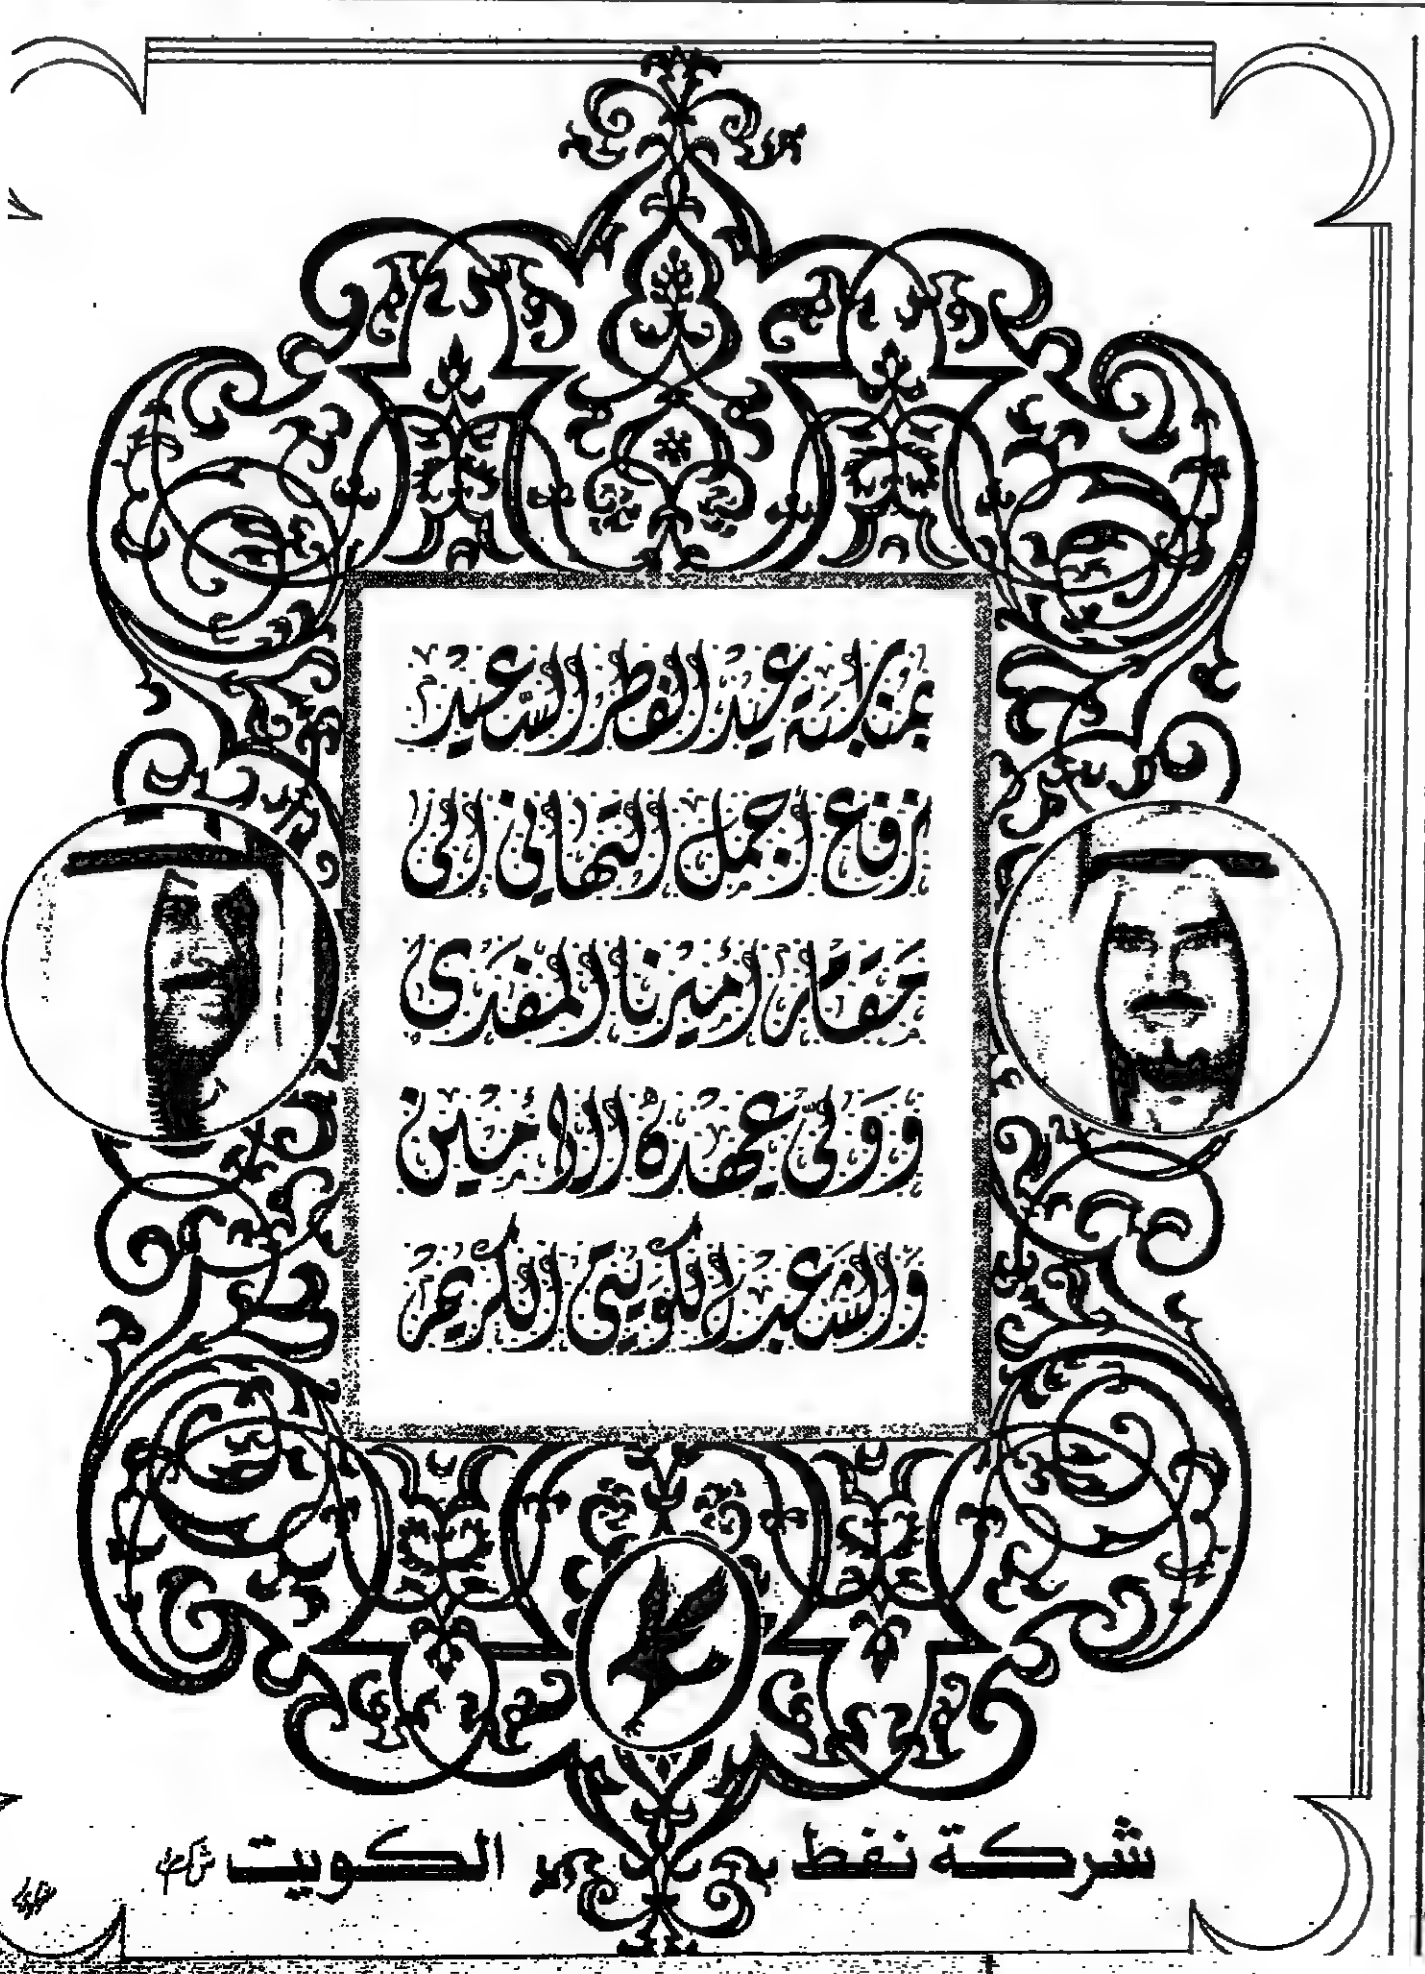 بمناسبة عيد الفطر السعيد
نرفع اجمل التهاني الى
مقام اميرنا المفدى
وولي عهده الامين
والشعب الكويتي الكريم
شركة نفط الكويت ش.ك